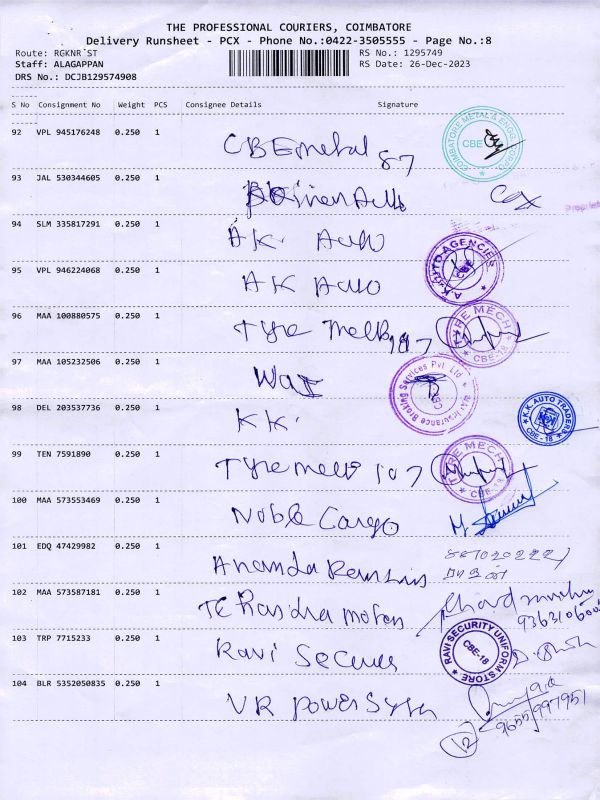 THE PROFESSIONAL COURIERS, COIMBATORE
Delivery Runsheet - PCX - Phone No.:0422-3505555 - Page No.:8
Route: RGKNR ST
RS No.: 1295749
Staff: ALAGAPPAN
RS Date: 26-Dec-2023
DRS No.: DCJB129574908
S No Consignment No Weight PCS Consignee Details Signature
92 VPL 945176248 0.250 1
CBE metal 87
COIMBATORE METAL & ENGG. CBE
93 JAL 530344605 0.250 1
94 SLM 335817291 0.250 1
AK Auto
A.K. AUTO AGENCIES CBE
95 VPL 946224068 0.250 1
AK Auto
96 MAA 100880575 0.250 1
Tyre 107
TYRE MECH CBE-18
97 MAA 105232506 0.250 1
Insurance Broking Services Pvt Ltd
98 DEL 203537736 0.250 1
KK
K.K. AUTO TRADERS CBE-18
99 TEN 7591890 0.250 1
Tyre 107
TYRE MECH CBE-18
100 MAA 573553469 0.250 1
Noble Cargo
101 EDQ 47429982 0.250 1
Ananda
102 MAA 573587181 0.250 1
Motors
103 TRP 7715233 0.250 1
Ravi
RAVI SECURITY UNIFORM STORE CBE-18
104 BLR 5352050835 0.250 1
VR Power
9655997951
12